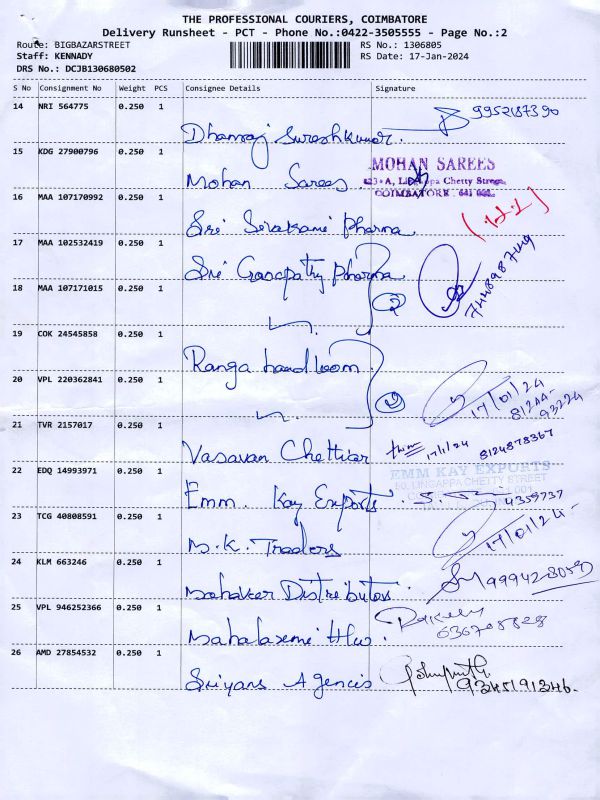 THE PROFESSIONAL COURIERS, COIMBATORE
Delivery Runsheet - PCT - Phone No.:0422-3505555 - Page No.:2
Route: BIGBAZARSTREET
Staff: KENNADY
DRS No.: DCJB130680502
RS No.: 1306805
RS Date: 17-Jan-2024
S No Consignment No Weight PCS Consignee Details Signature
14 NRI 564775 0.250 1 Dhanraj Sureshkumar. 9952187390
15 KDG 27900796 0.250 1 Mohan Sarees
MOHAN SAREES
Chetty Street
COIMBATORE 641 001
16 MAA 107170992 0.250 1 Sri Sivakami Pharma
17 MAA 102532419 0.250 1 Sri Ganapathy Pharma 2 7448987449
18 MAA 107171015 0.250 1
19 COK 24545858 0.250 1 Ranga handloom 2
20 VPL 220362841 0.250 1 17/01/24
81244-
93224
21 TVR 2157017 0.250 1 Vasavan Chettiar 17/1/24 8124878367
22 EDQ 14993971 0.250 1 Emm. Kay Exports.
EMM KAY EXPORTS
LINGAPPA CHETTY STREET
4359737
23 TCG 40808591 0.250 1 M.K. Traders 17/01/24
24 KLM 663246 0.250 1 Mahaveer Distributors. 99942-28059
25 VPL 946252366 0.250 1 Mahalaxmi Hw.
26 AMD 27854532 0.250 1 Sriyans Agencis 9345191346.